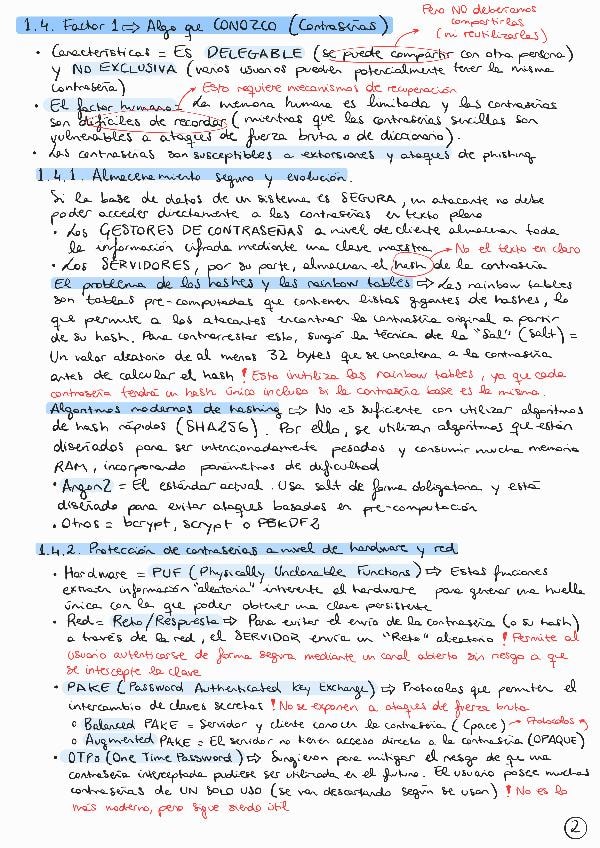 Pero NO deberíamos
compartirlas
(ni reutilizarlas)
1.4. Factor 1 ⇒ Algo que CONOZCO (Contraseñas)
• Características = ES DELEGABLE (se puede compartir con otra persona)
y NO EXCLUSIVA (varios usuarios pueden potencialmente tener la misma
contraseña)
Esto requiere mecanismos de recuperación
• El factor humano = La memoria humana es limitada y las contraseñas
son difíciles de recordar (mientras que las contraseñas sencillas son
vulnerables a ataques de fuerza bruta o de diccionario).
• Las contraseñas son susceptibles a extorsiones y ataques de phising
1.4.1. Almacenamiento seguro y evolución.
Si la base de datos de un sistema es SEGURA, un atacante no debe
poder acceder directamente a las contraseñas en texto plano
• Los GESTORES DE CONTRASEÑAS a nivel de cliente almacenan toda
la información cifrada mediante una clave maestra
→ No el texto en claro
• Los SERVIDORES, por su parte, almacenan el hash de la contraseña
El problema de los hashes y las rainbow tables ⇒ Las rainbow tables
son tablas pre-computadas que contienen listas gigantes de hashes, lo
que permite a los atacantes encontrar la contraseña original a partir
de su hash. Para contrarrestar esto, surgió la técnica de la "Sal" (Salt) =
Un valor aleatorio de al menos 32 bytes que se concatena a la contraseña
antes de calcular el hash ! Esto inutiliza las rainbow tables, ya que cada
contraseña tendrá un hash único incluso si la contraseña base es la misma.
Algoritmos modernos de hashing ⇒ No es suficiente con utilizar algoritmos
de hash rápidos (SHA256). Por ello, se utilizan algoritmos que están
diseñados para ser intencionadamente pesados y consumir mucha memoria
RAM, incorporando parámetros de dificultad
• Argon2 = El estándar actual. Usa salt de forma obligatoria y está
diseñado para evitar ataques basados en pre-computación
• Otros = bcrypt, scrypt o PBKDF2
1.4.2. Protección de contraseñas a nivel de hardware y red
• Hardware = PUF (Physically Unclonable Functions) ⇒ Estas funciones
extraen información "aleatoria" inherente al hardware para generar una huella
única con la que poder obtener una clave persistente
• Red = Reto/Respuesta ⇒ Para evitar el envío de la contraseña (o su hash)
a través de la red, el SERVIDOR envía un "Reto" aleatorio ! Permite al
usuario autenticarse de forma segura mediante un canal abierto sin riesgo a que
se intercepte la clave
• PAKE (Password Authenticated Key Exchange) ⇒ Protocolos que permiten el
intercambio de claves secretas ! No se exponen a ataques de fuerza bruta
o Balanced PAKE = Servidor y cliente conocen la contraseña (Cpace) → Protocolos
o Augmented PAKE = El servidor no tiene acceso directo a la contraseña (OPAQUE)
• OTPs (One Time Password) ⇒ Surgieron para mitigar el riesgo de que una
contraseña interceptada pudiese ser utilizada en el futuro. El usuario posee muchas
contraseñas de UN SOLO USO (se van descartando según se usan) ! No es lo
más moderno, pero sigue siendo útil
2